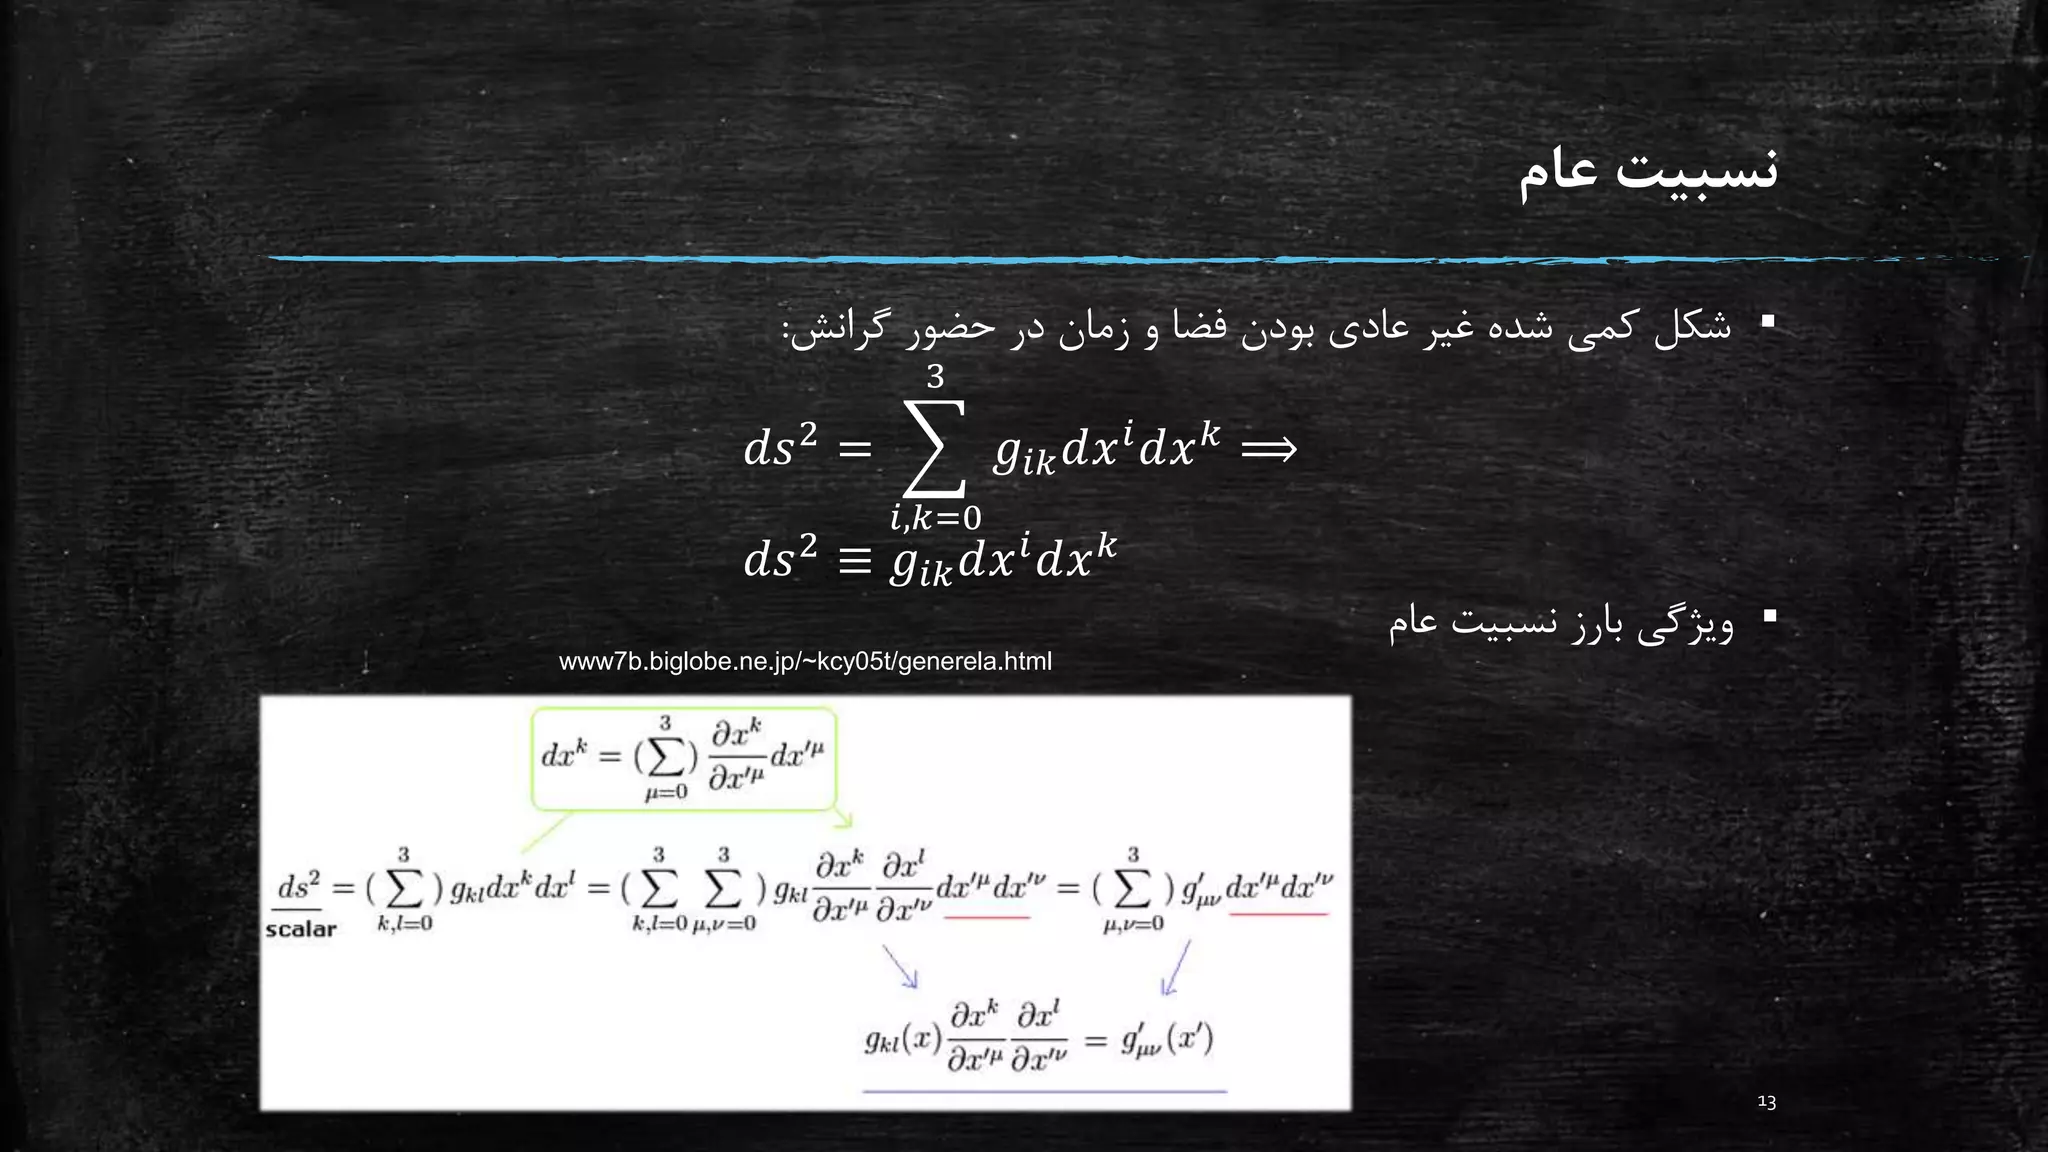 نسبیت عام
▪ شکل کمی شده غیر عادی بودن فضا و زمان در حضور گرانش:
$ds^2 = \sum_{i,k=0}^{3} g_{ik} dx^i dx^k \Rightarrow$
$ds^2 \equiv g_{ik} dx^i dx^k$
▪ ویژگی بارز نسبیت عام
www7b.biglobe.ne.jp/~kcy05t/generela.html
$dx^k = (\sum_{\mu=0}^{3}) \frac{\partial x^k}{\partial x'^\mu} dx'^\mu$
$ds^2 = (\sum_{k,l=0}^{3}) g_{kl} dx^k dx^l = (\sum_{k,l=0}^{3} \sum_{\mu,\nu=0}^{3}) g_{kl} \frac{\partial x^k}{\partial x'^\mu} \frac{\partial x^l}{\partial x'^\nu} dx'^\mu dx'^\nu = (\sum_{\mu,\nu=0}^{3}) g'_{\mu\nu} dx'^\mu dx'^\nu$
scalar
$g_{kl}(x) \frac{\partial x^k}{\partial x'^\mu} \frac{\partial x^l}{\partial x'^\nu} = g'_{\mu\nu}(x')$
13